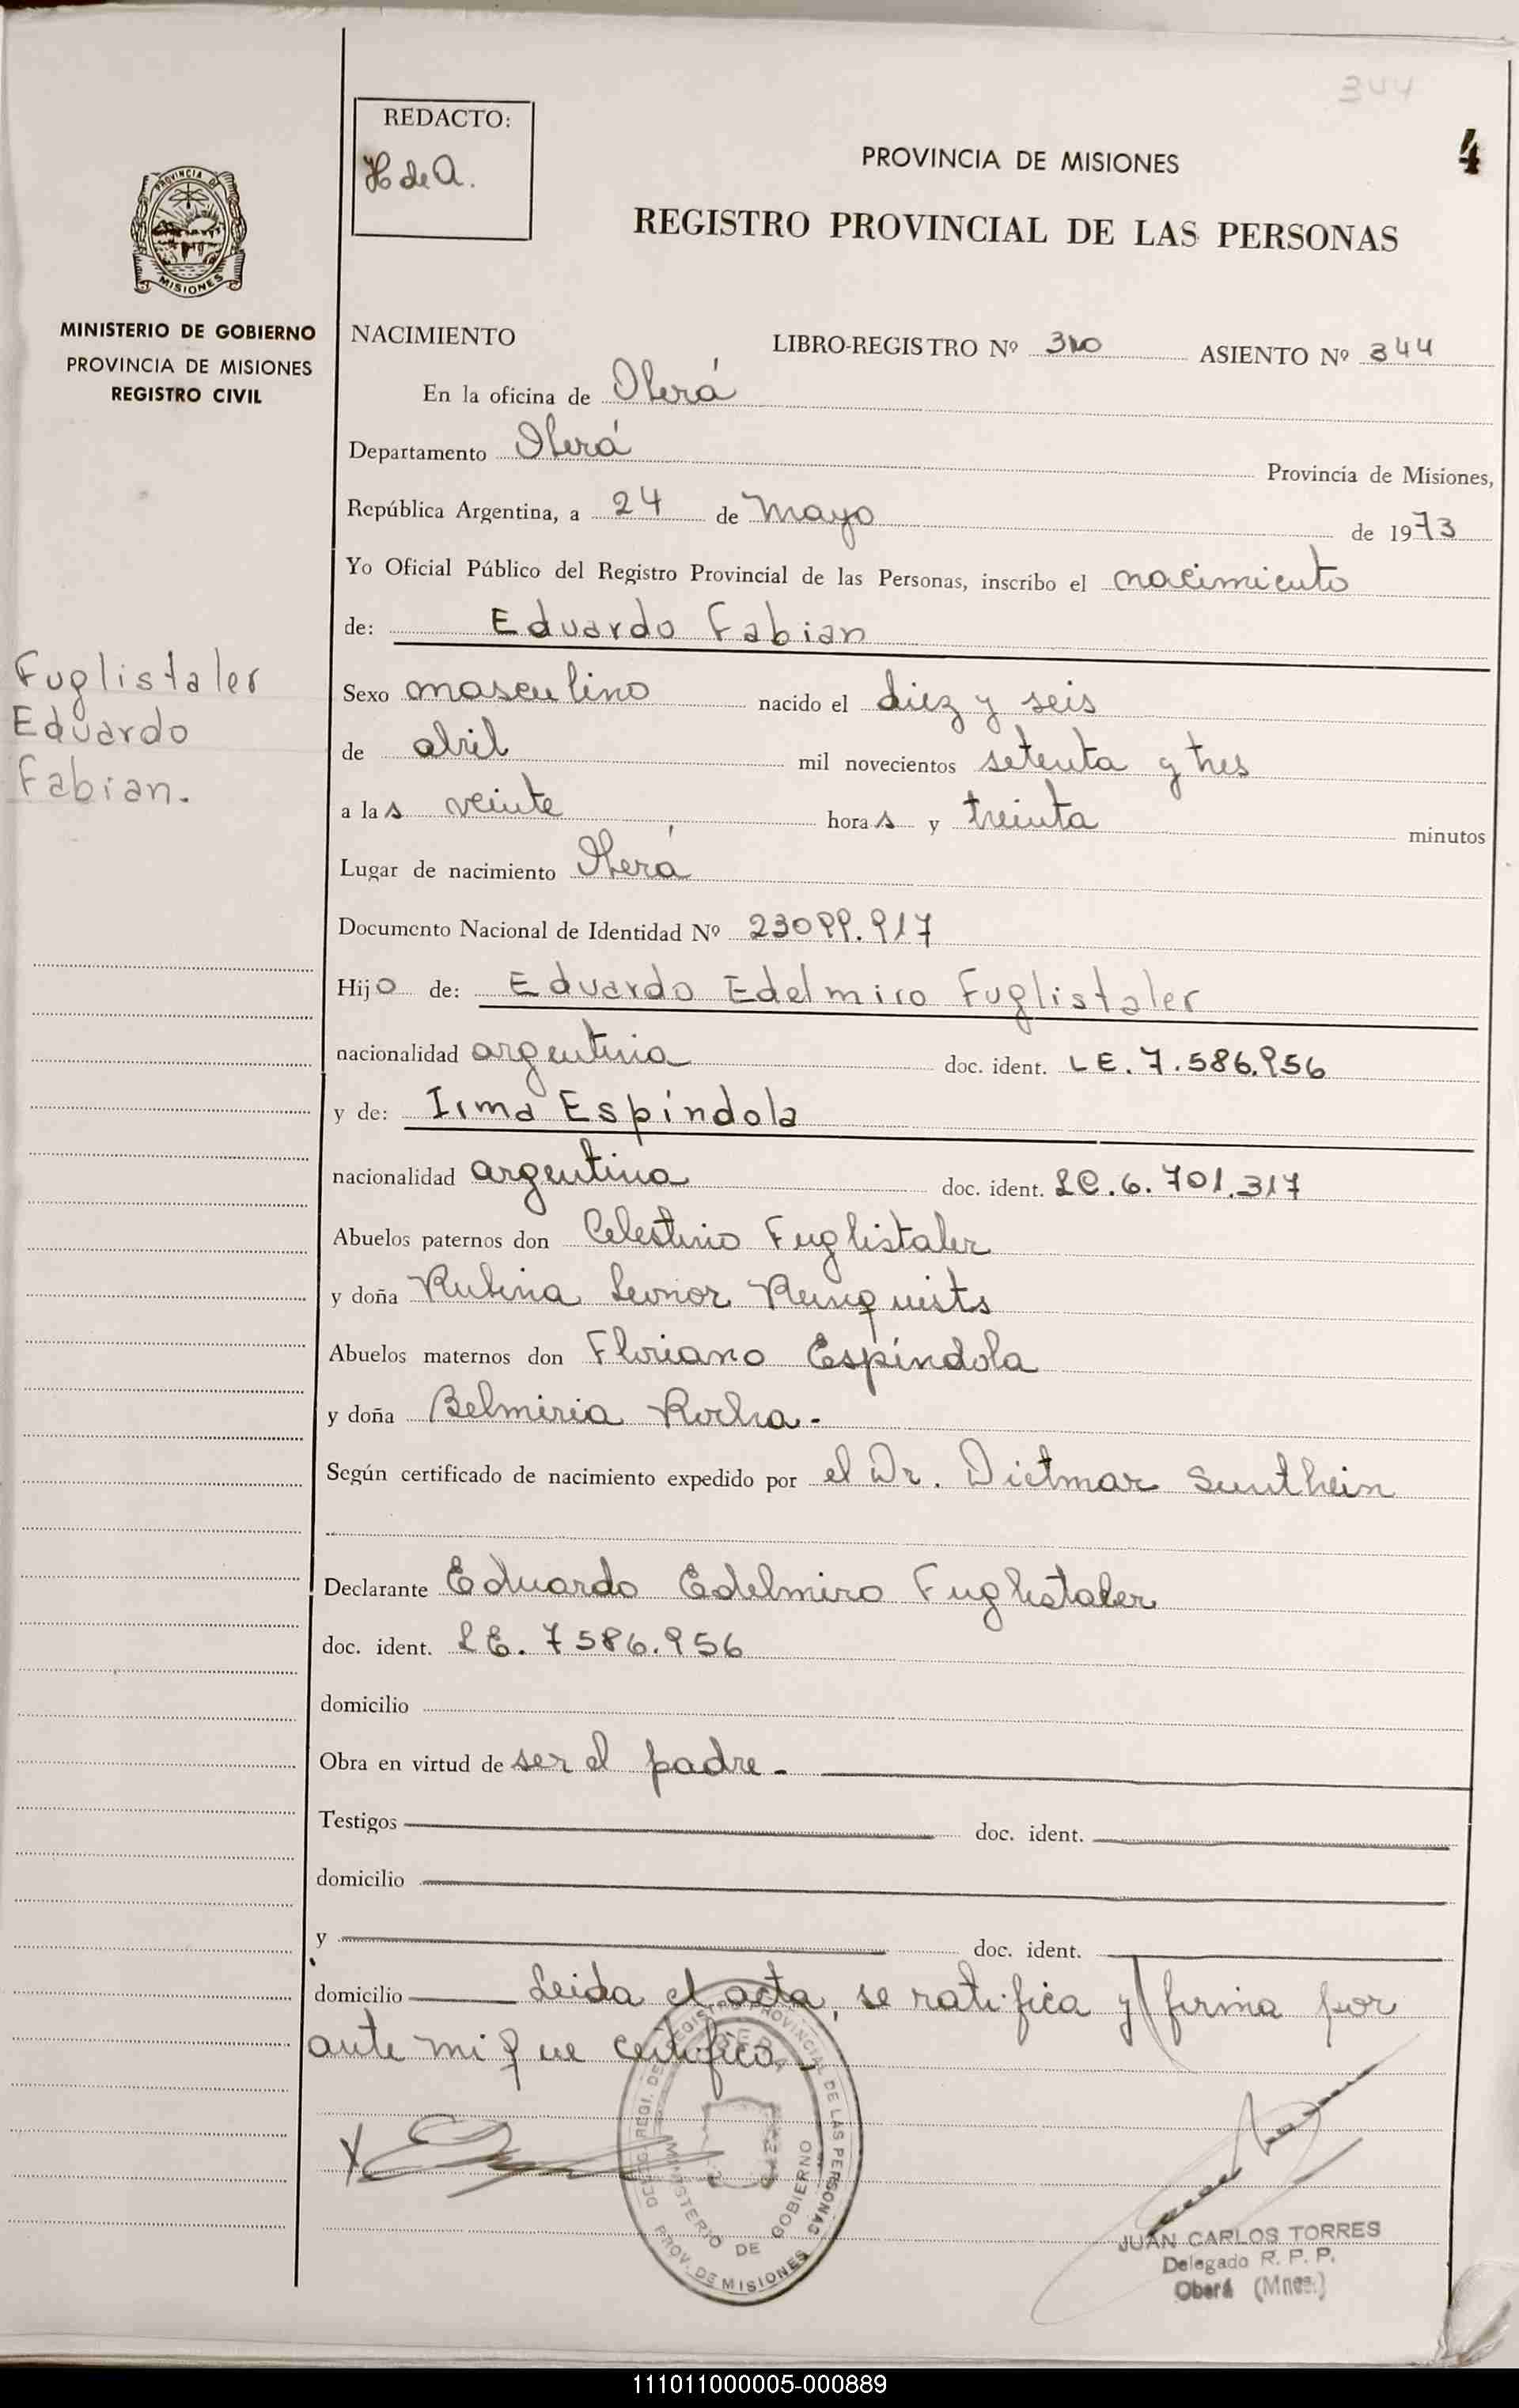 344
REDACTO:
H de A.
4
PROVINCIA DE MISIONES
REGISTRO PROVINCIAL DE LAS PERSONAS
PROVINCIA DE
MISIONES
MINISTERIO DE GOBIERNO
PROVINCIA DE MISIONES
REGISTRO CIVIL
NACIMIENTO LIBRO-REGISTRO Nº ASIENTO Nº 344
En la oficina de Oberá
Departamento Oberá Provincia de Misiones,
República Argentina, a 24 de Mayo de 1973
Yo Oficial Público del Registro Provincial de las Personas, inscribo el nacimiento
de: Eduardo Fabian
Fuglistaler
Eduardo
Fabian.
Sexo masculino nacido el diez y seis
de abril mil novecientos setenta y tres
a las veinte horas y treinta minutos
Lugar de nacimiento Oberá
Documento Nacional de Identidad Nº 23099.917
Hijo de: Eduardo Edelmiro Fuglistaler
nacionalidad argentina doc. ident. LE. 7.586.956
y de: Irma Espíndola
nacionalidad argentina doc. ident. LC. 6.701.317
Abuelos paternos don Celestino Fuglistaler
y doña Rubina Leonor
Abuelos maternos don Floriano Espíndola
y doña Belmiria Rocha.-
Según certificado de nacimiento expedido por el Dr. Dietmar
Declarante Eduardo Edelmiro Fuglistaler
doc. ident. LE. 7586.956
domicilio
Obra en virtud de ser el padre.-
Testigos doc. ident.
domicilio
y doc. ident.
domicilio Leida el acta, se ratifica y firma por
ante mi que certifico.-
REGISTRO PROVINCIAL DE LAS PERSONAS
MINISTERIO DE GOBIERNO
PROV. DE MISIONES
JUAN CARLOS TORRES
Delegado R. P. P.
Oberá (Mnes.)
111011000005-000889